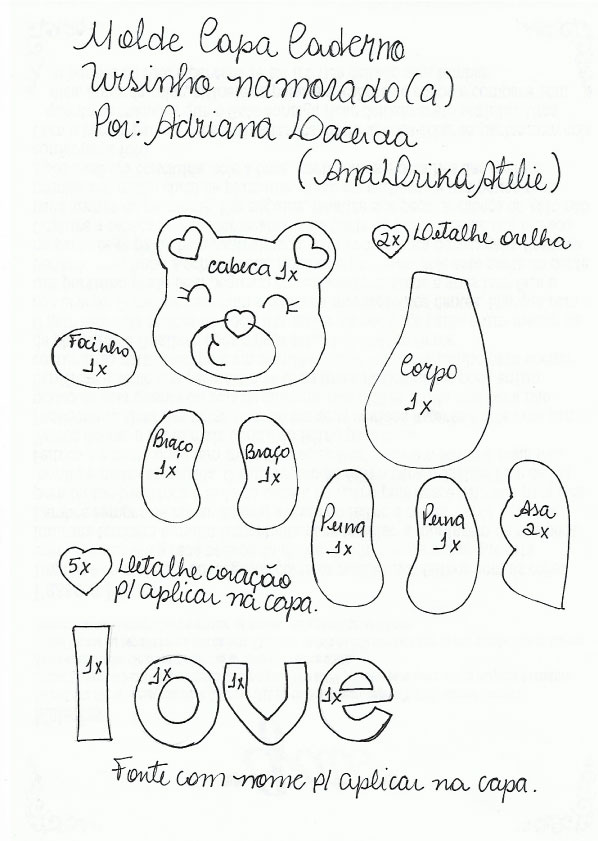 Molde Capa Caderno
Ursinho namorado(a)
Por: Adriana Lacerda
(AnaDrikaAtelie)
cabeca 1x
2x Detalhe orelha
Focinho
1x
Corpo
1x
Braço
1x
Braço
1x
Perna
1x
Perna
1x
Asa
2x
5x Detalhe coração
p/ aplicar na capa.
1x 1x 1x 1x
love
Fonte com nome p/ aplicar na capa.